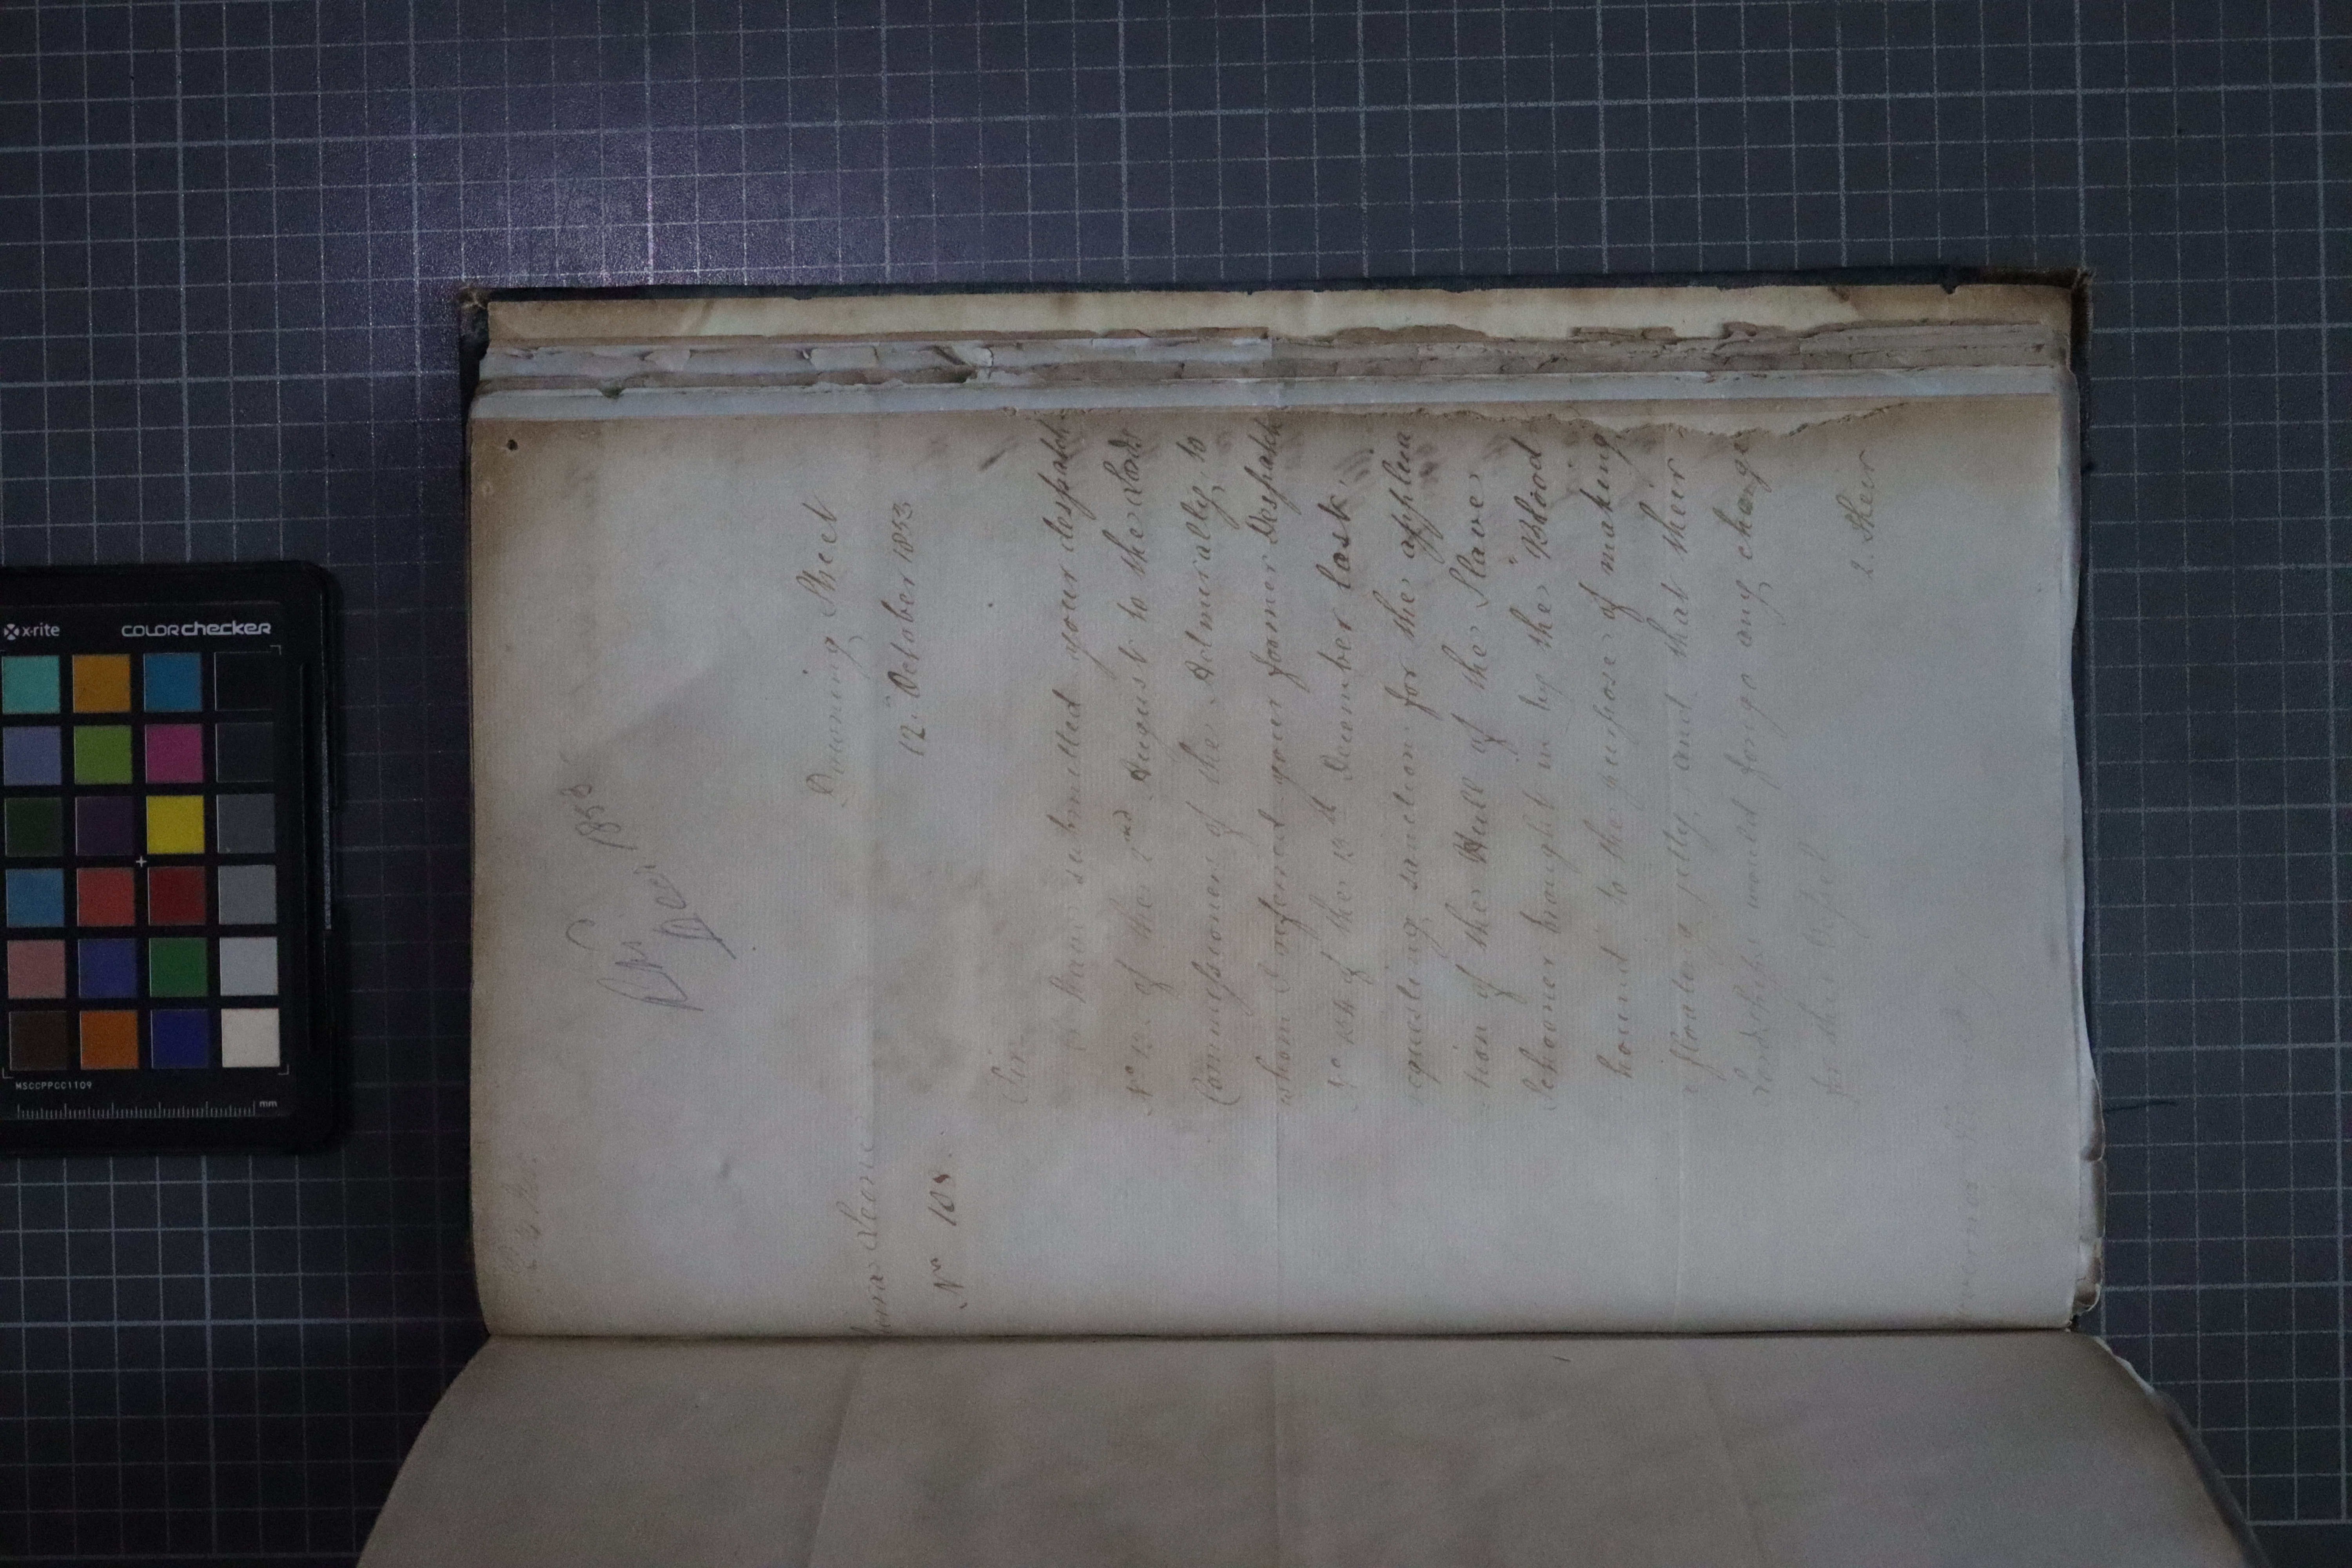 Rec^d
Decr, 1853
Downing Street
12. October 1853
Sierra Leone
N^o 108.
Sir
I have submitted your despatch
N^o 12. of the 2^nd August to the Lords
Commissioners of the Admiralty, to
whom I referred your former Despatch
N^o of the 13^th December last,
requesting sanction for the applica
tion of the Hull of the Slave
Schooner brought in by the "Blood
hound" to the purpose of making
a floating jetty, and that their
Lordships would forego any charge
for this Vessel.
2. Their
x-rite
colorchecker
MSCCPPCC1109
mm